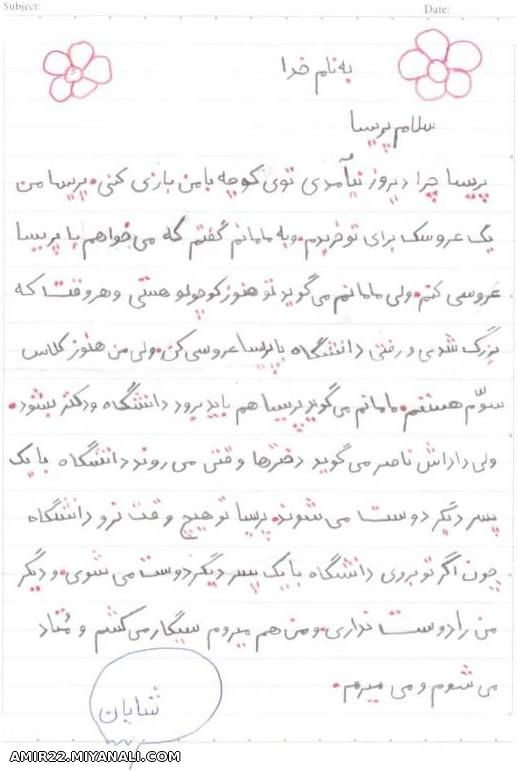 Subject:
Date:
به نام خدا
سلام پریسا
پریسا چرا دیروز نیآمدی توی کوچه با من بازی کنی. پریسا من
یک عروسک برای تو خریدم. و به مامانم گفتم که می خواهم با پریسا
عروسی کنم. ولی مامانم می گوید تو هنوز کوچولو هستی و هر وقت که
بزرگ شدی و رفتی دانشگاه با پریسا عروسی کن. ولی من هنوز کلاس
سوّم هستم. مامانم می گوید پریسا هم باید برود دانشگاه و دکتر بشود.
ولی داداش ناصر می گوید دخترها وقتی می روند دانشگاه با یک
پسر دیگر دوست می شوند. پریسا تو هیچ وقت نرو دانشگاه
چون اگر تو بروی دانشگاه با یک پسر دیگر دوست می شوی. و دیگر
من را دوست نداری. و من هم میروم سیگار می کشم و مُتاد
می شوم و می میرم.
شایان
AMIR22.MIYANALI.COM